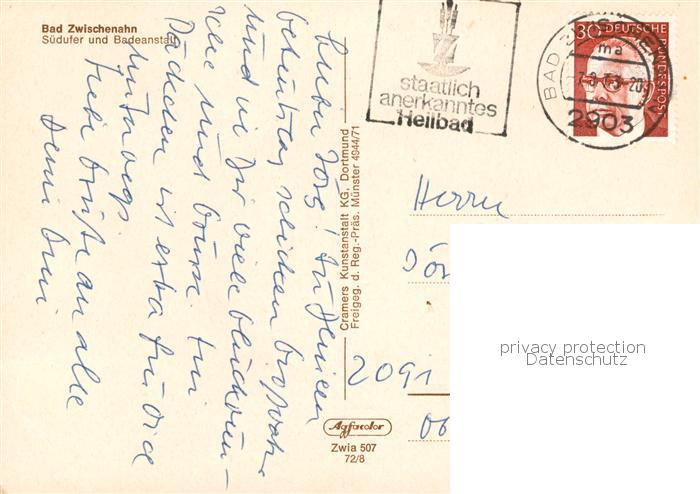 Bad Zwischenahn
Südufer und Badeanstalt
staatlich
anerkanntes
Heilbad
30 DEUTSCHE BUNDESPOST
BAD ZWISCHENAHN
ma
2903
Lieber Jörg! Zu Deinem
Geburtstag schicken Großvater
und wir Dir viele Glückwün-
sche und Grüße. Ein
Päckchen ist extra für Dich
unterwegs.
Liebe Grüße an alle
Deine Omi
Cramers Kunstanstalt KG, Dortmund
Freigeg. d. Reg.-Präs. Münster 4944/71
Herrn
2091
Agfacolor
Zwia 507
72/8
privacy protection
Datenschutz